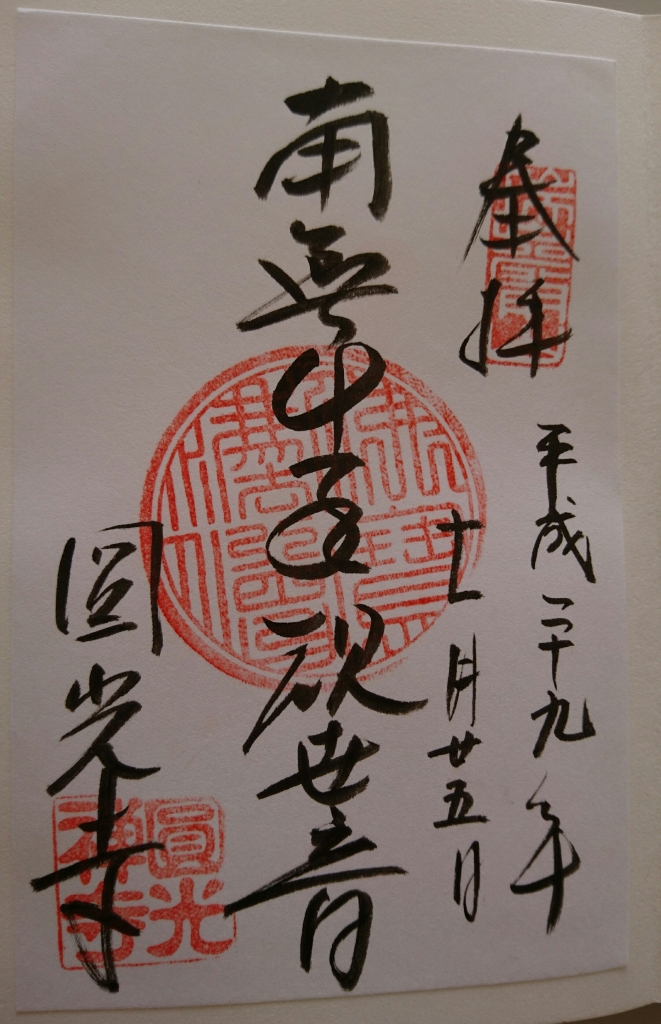 奉拝
平成二十九年
十一月廿五日
南無千手観世音
圓光寺
圓光禅寺